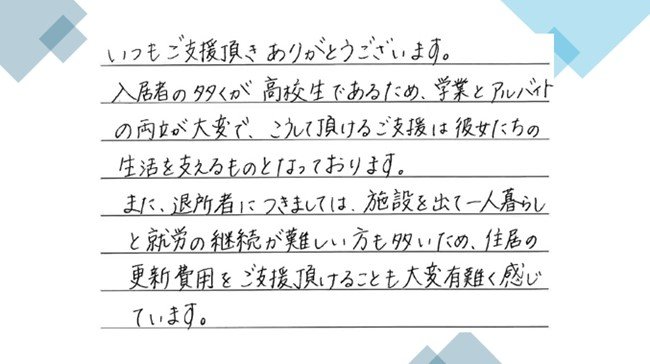 いつもご支援頂きありがとうございます。
入居者の多くが高校生であるため、学業とアルバイト
の両立が大変で、こうして頂けるご支援は彼女たちの
生活を支えるものとなっております。
また、退所者につきましては、施設を出て一人暮らし
と就労の継続が難しい方も多いため、住居の
更新費用をご支援頂けることも大変有難く感じ
ています。